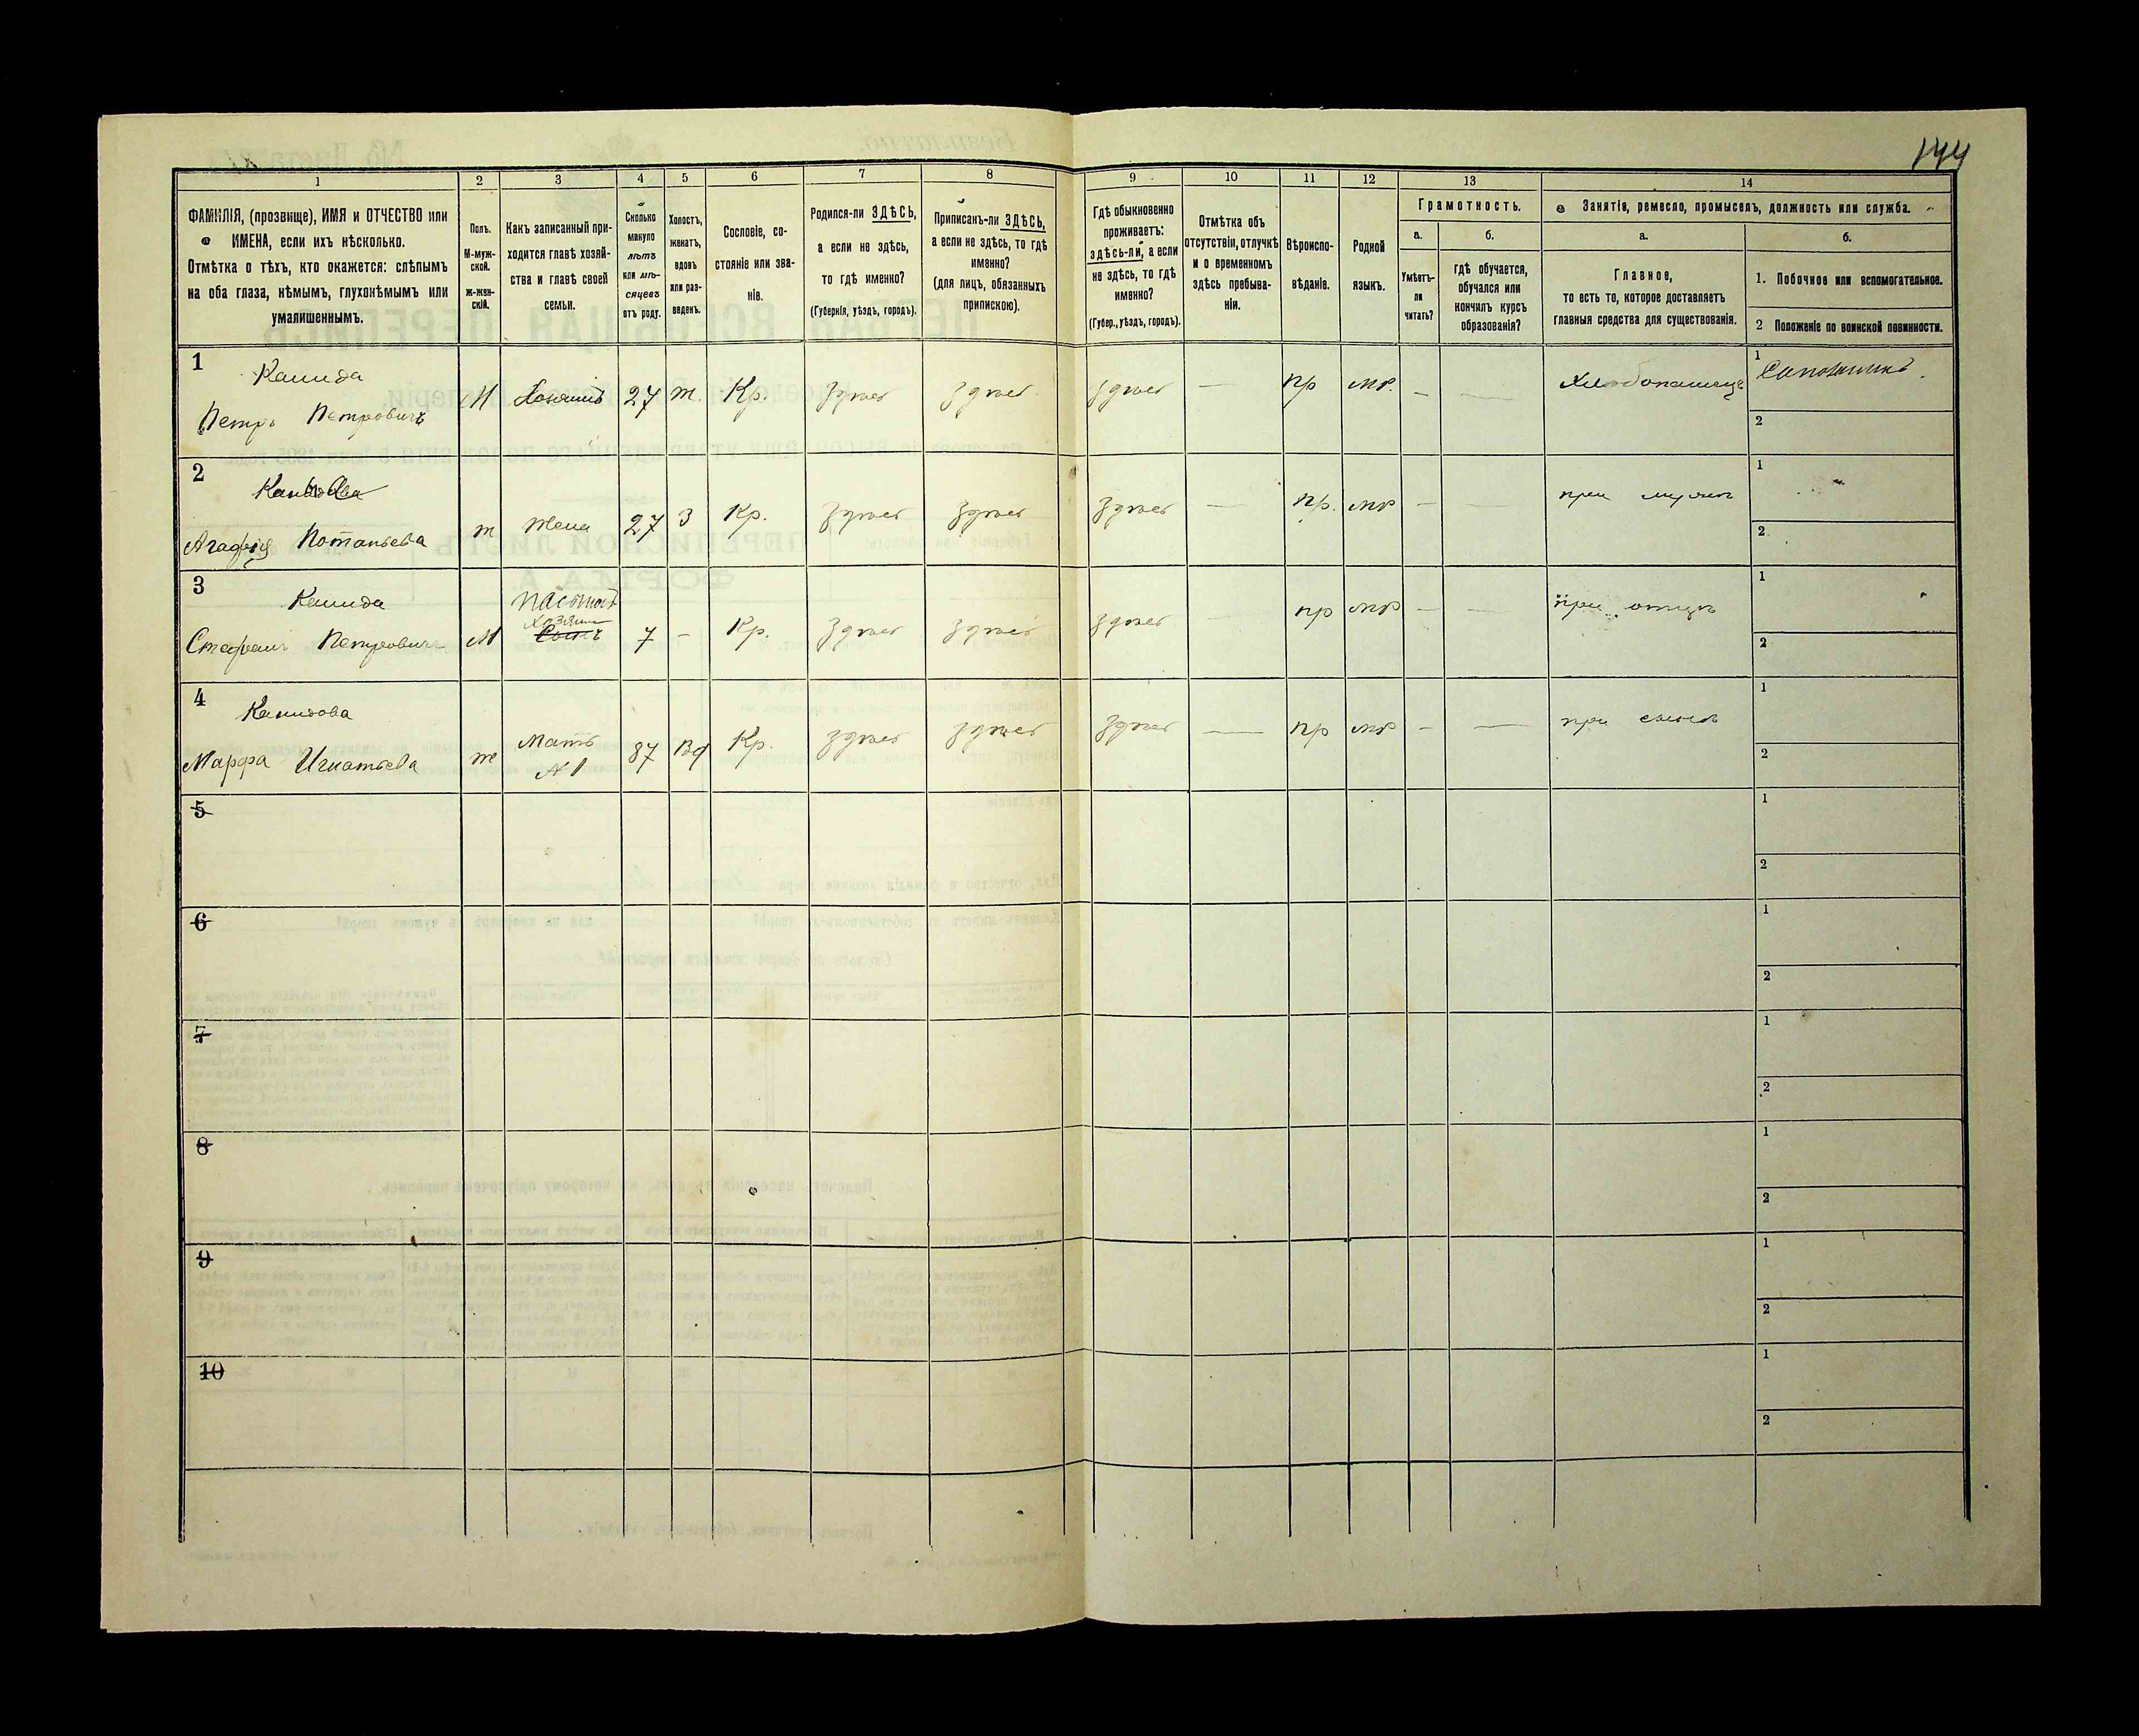 144
1
2
3
4
5
6
7
8
9
10
11
12
13
14
ФАМИЛІЯ, (прозвище), ИМЯ и ОТЧЕСТВО или
ИМЕНА, если ихъ нѣсколько.
Отмѣтка о тѣхъ, кто окажется: слѣпымъ
на оба глаза, нѣмымъ, глухонѣмымъ или
умалишеннымъ.
Полъ.
М-муж-
ской.
Ж-жен-
скій.
Какъ записанный при-
ходится главѣ хозяй-
ства и главѣ своей
семьи.
Сколько
минуло
лѣтъ
или мѣ-
сяцевъ
отъ роду.
Холостъ,
женатъ,
вдовъ
или раз-
веденъ.
Сословіе, со-
стояніе или зва-
ніе.
Родился-ли ЗДѢСЬ,
а если не здѣсь,
то гдѣ именно?
(Губернія, уѣздъ, городъ).
Приписанъ-ли ЗДѢСЬ,
а если не здѣсь, то гдѣ
именно?
(для лицъ, обязанныхъ
припискою).
Гдѣ обыкновенно
проживаетъ:
здѣсь-ли, а если
не здѣсь, то гдѣ
именно?
(Губер., уѣздъ, городъ).
Отмѣтка объ
отсутствіи, отлучкѣ
и о временномъ
здѣсь пребыва-
ніи.
Вѣроиспо-
вѣданіе.
Родной
языкъ.
Грамотность.
а.
Умѣетъ-
ли
читать?
б.
гдѣ обучается,
обучался или
кончилъ курсъ
образованія?
Занятіе, ремесло, промыселъ, должность или служба.
а.
Главное,
то есть то, которое доставляетъ
главныя средства для существованія.
б.
1. Побочное или вспомогательное.
2 Положеніе по воинской повинности.
1
Канида
Петръ Петровичъ
М
Хозяинъ
27
ж.
Кр.
Здѣсь
Здѣсь
Здѣсь
—
пр
мр.
—
—
Хлѣбопашецъ
1
Сапожникъ
2
2
Агафія Потапьева
ж
Жена
27
З
Кр.
Здѣсь
Здѣсь
Здѣсь
—
пр.
мр
—
—
при мужѣ
1
2
3
Канида
Стефанъ Петровичъ
М
Сынъ
7
-
Кр.
Здѣсь
Здѣсь
Здѣсь
—
пр
мр
—
—
при отцѣ
1
2
4
Канидова
Марфа Игнатьева
ж
Мать
№1
87
Вд
Кр.
Здѣсь
Здѣсь
Здѣсь
—
пр
мр
—
—
при сынѣ
1
2
5
1
2
6
1
2
7
1
2
8
1
2
9
1
2
10
1
2